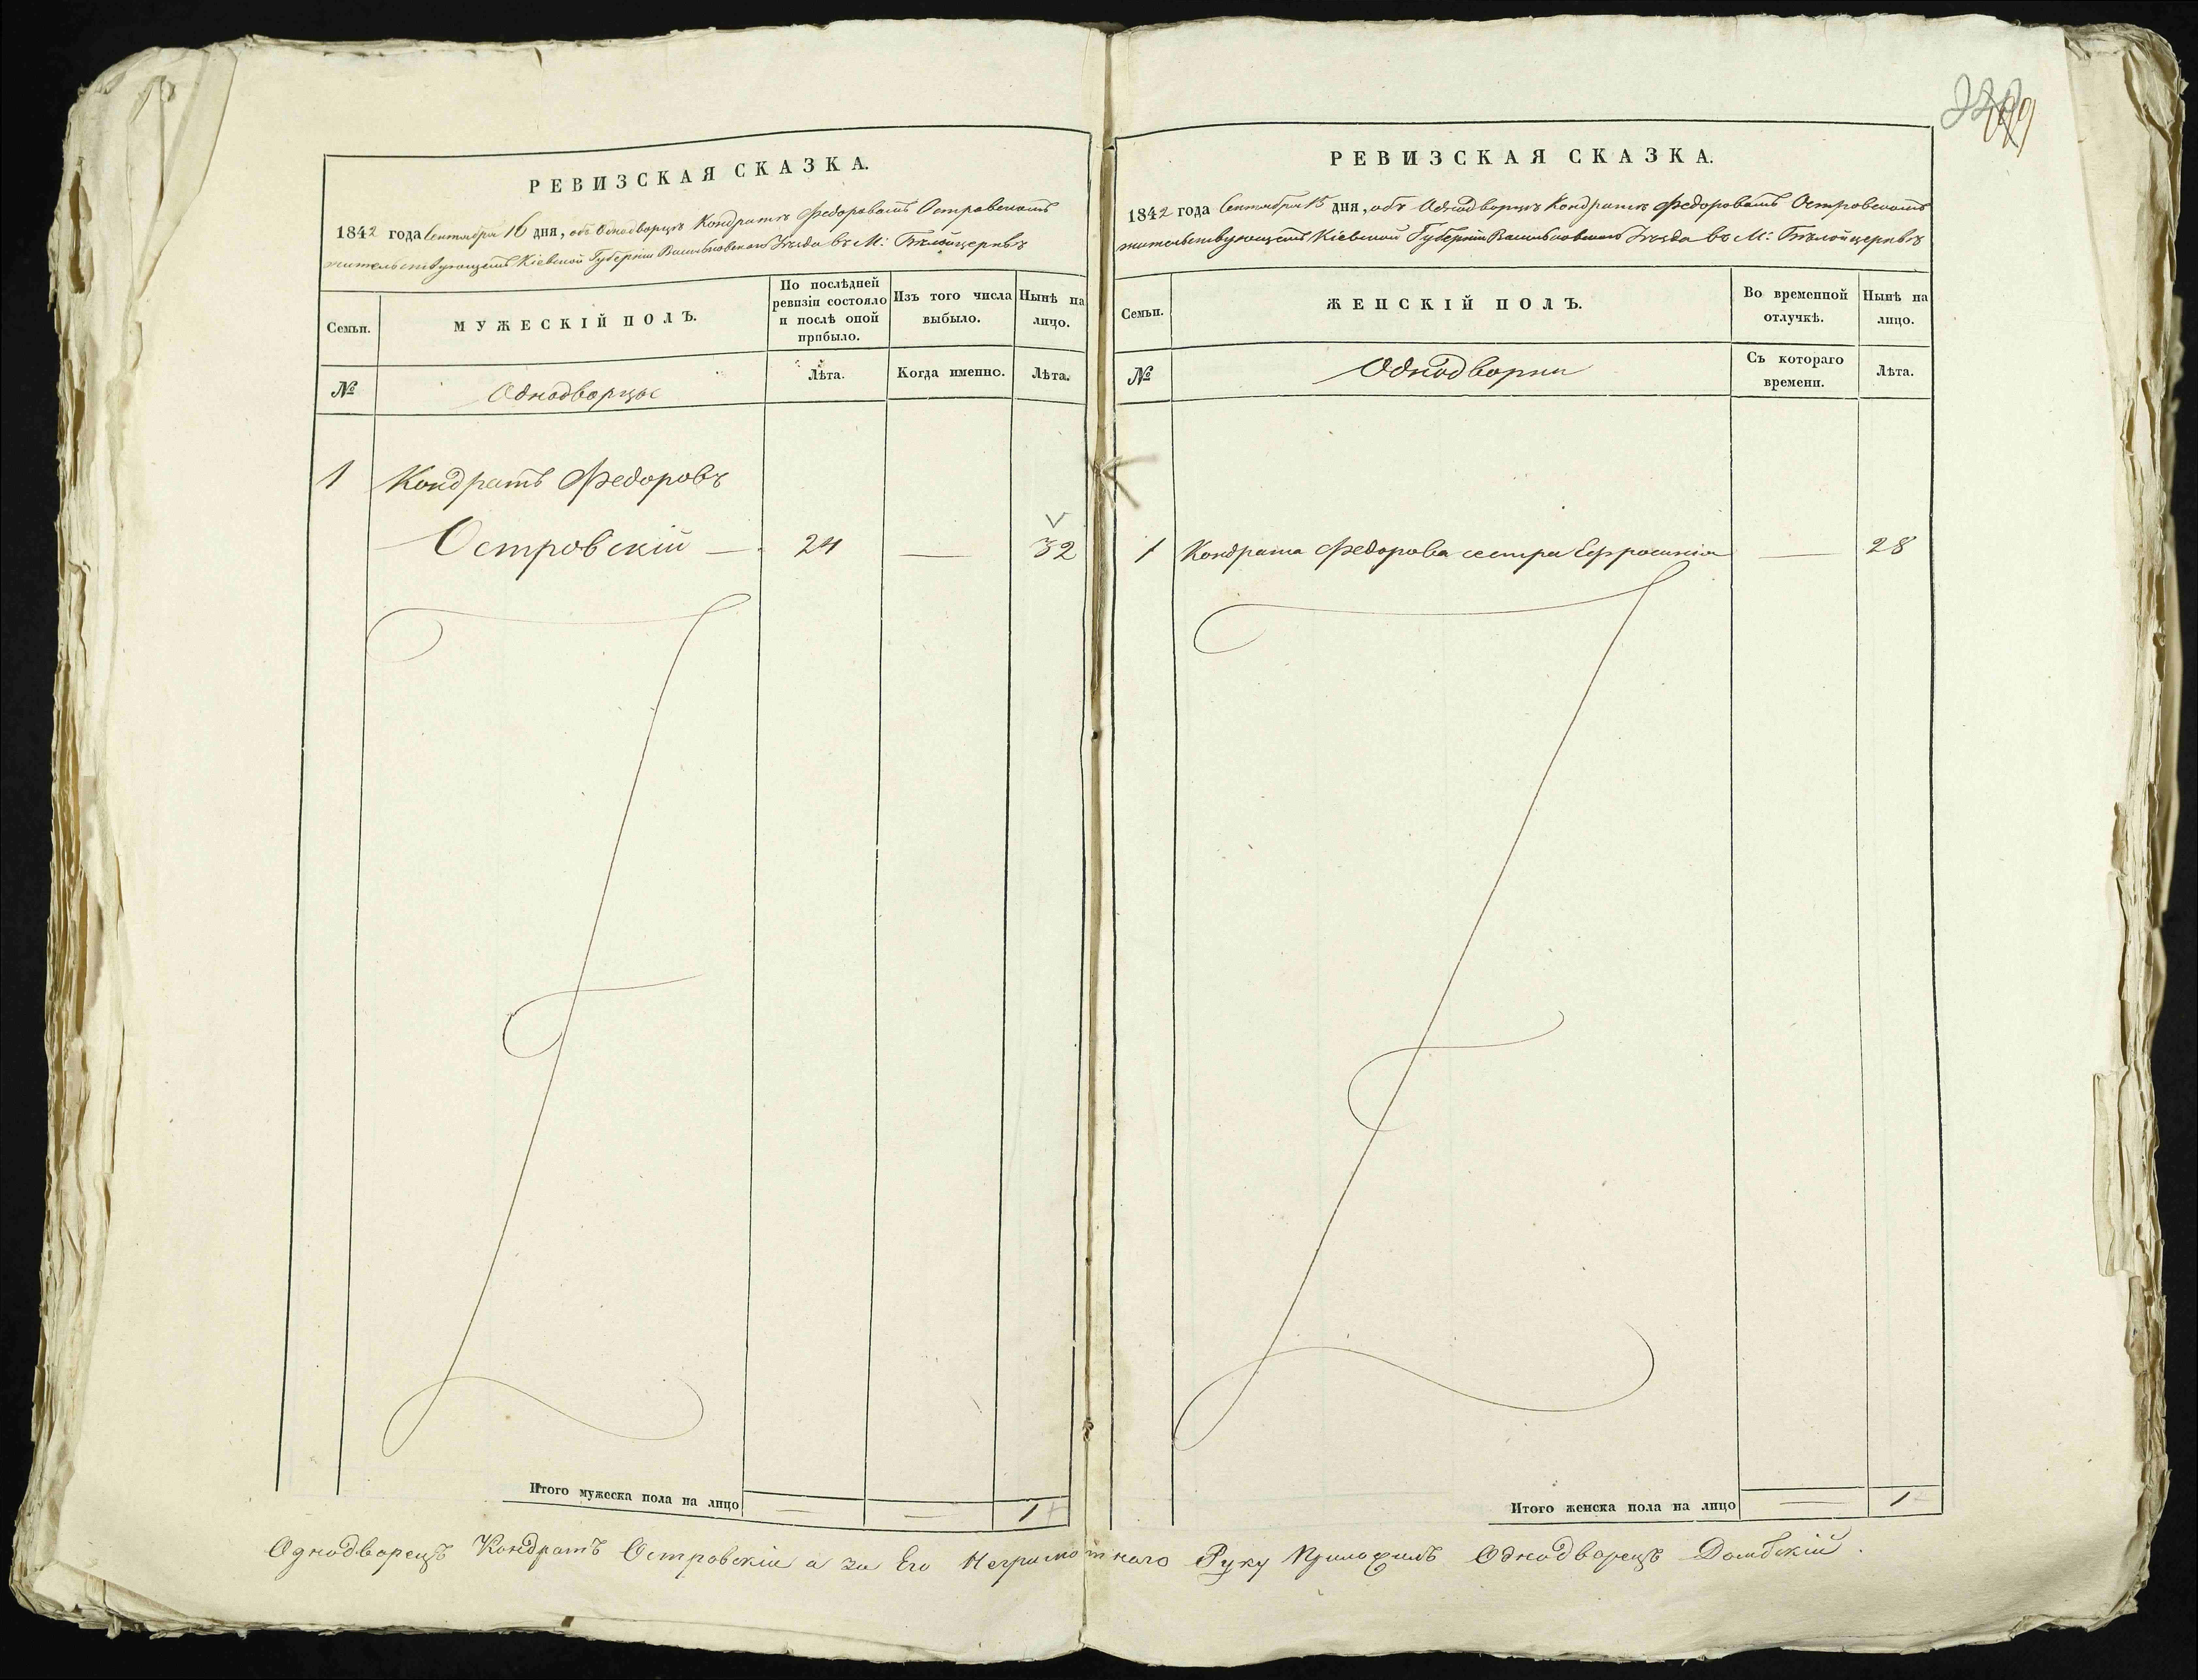 РЕВИЗСКАЯ СКАЗКА.
1842 года Сентября 16 дня, объ Однодворцѣ Кондратѣ Федоровомъ Островскомъ
жительствующемъ Кіевской Губерніи Васильковскаго Уѣзда въ М: Бѣлойцерквѣ
Семьи.
МУЖЕСКІЙ ПОЛЪ.
По послѣдней ревизіи состояло и послѣ оной прибыло.
Изъ того числа выбыло.
Нынѣ на лицо.
№
Однодворцы
Лѣта.
Когда именно.
Лѣта.
1 Кондратъ Федоровъ
Островскій — 24 — 32
Итого мужеска пола на лицо = = 1
РЕВИЗСКАЯ СКАЗКА.
1842 года Сентября 15 дня, объ Однодворцѣ Кондратѣ Федоровомъ Островскомъ
жительствующемъ Кіевской Губерніи Васильковскаго Уѣзда въ М: Бѣлойцерквѣ
Семьи.
ЖЕНСКІЙ ПОЛЪ.
Во временной отлучкѣ.
Нынѣ на лицо.
№
Однодворки
Съ котораго времени.
Лѣта.
1 Кондрата Федорова сестра Ефросинія — 28
Итого женска пола на лицо = 1
Однодворецъ Кондратъ Островскій а за Его Неграмотнаго Руку Приложилъ Однодворецъ Домбскій.